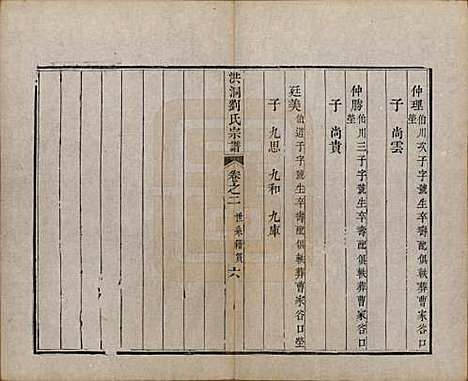 仲理伯川次子字號生卒壽配俱軼葬曹家谷口塋
子 尚雲
仲勝伯川三子字號生卒壽配俱軼葬曹家谷口塋
子 尚貴
廷美伯道子字號生卒壽配俱軼葬曹家谷口塋
子 九思 九和 九庫
洪洞劉氏宗譜 卷之二 世系籍貫 六